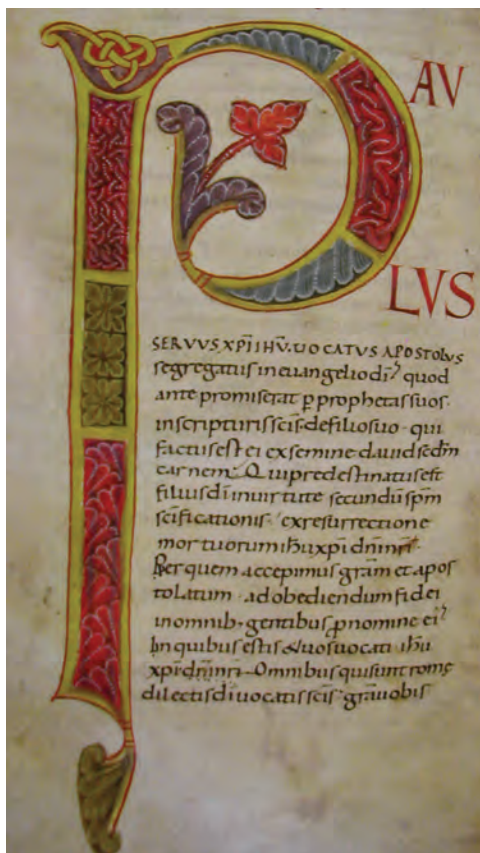 P AV
LVS
SERVVS XP̄I IHŪ. UOCATUS APOSTOLUS
segregatus in euangelio dī quod
ante promiserat p̄ prophetas suos.
in scripturis sc̄is. de filio suo. qui
factus est ei ex semine dauid sed̄m
carnem. Qui predestinatus est
filius dī in uirtute secundū sp̄m
sc̄ificationis. ex resurrectione
mortuorum ihū xp̄i dn̄i nr̄i.
Per quem accepimus grām et apos
tolatum. ad obediendum fidei
in omnib; gentibus p̄ nomine ei᾽
In quibus estis & uos uocati ihū
xp̄i dn̄i nr̄i. Omnibus qui sunt romę
dilectis dī uocatis sc̄is. grā uobis